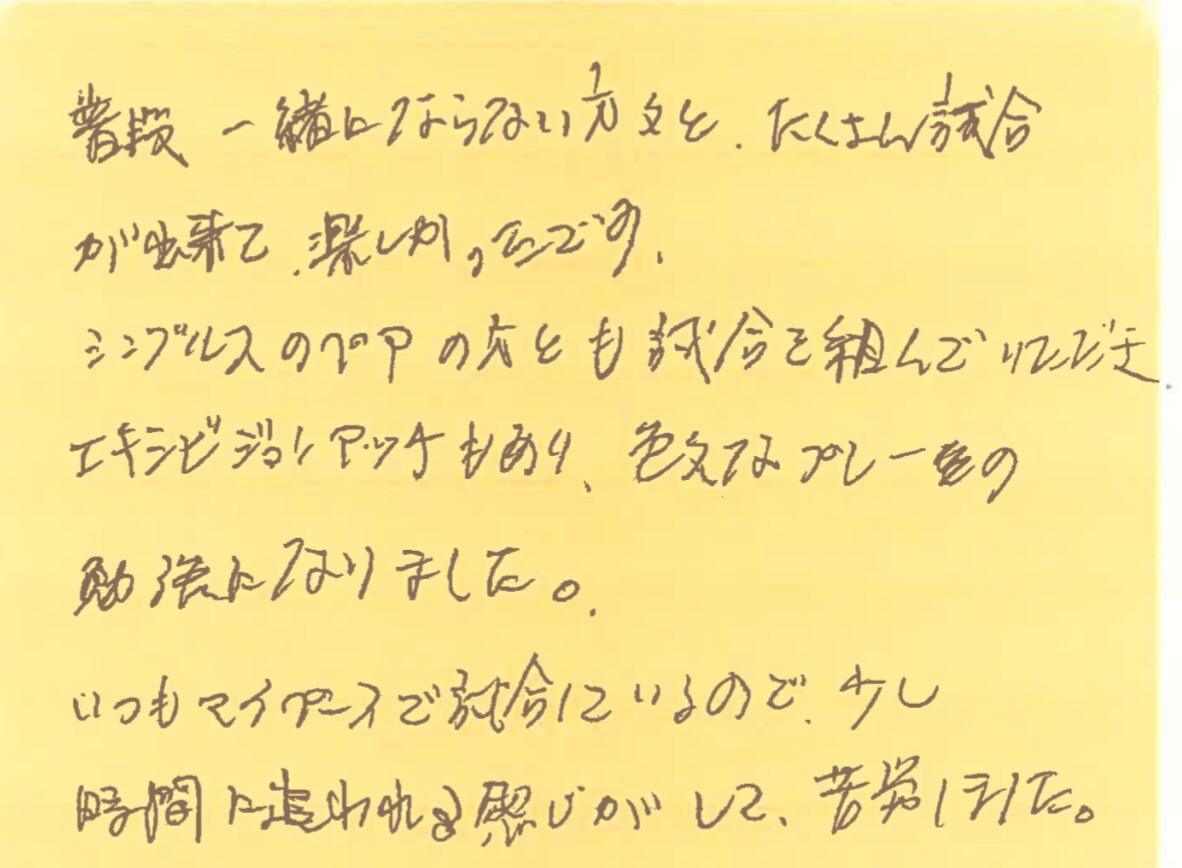 普段一緒にならない方々と、たくさん試合
が出来て、楽しかったです。
シングルスのペアの方とも試合を組んでいただき
エキシビジョンマッチもあり、色々なプレーの
勉強になりました。
いつもマイペースで試合しているので、少し
時間に追われる感じがして、苦労しました。